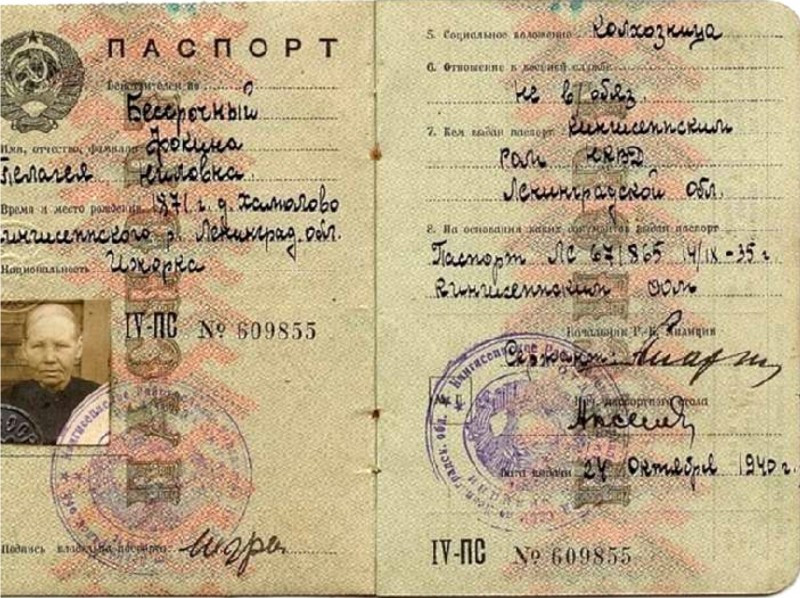 ПАСПОРТ
Действителен по
Бессрочный
Имя, отчество, фамилия Фокина
Пелагея Ниловка
Время и место рождения 1871 г. д. Хамолово
Кингисеппского р. Ленинград. обл.
Национальность Ижорка
IV-ПС № 609855
Подпись владельца паспорта
5. Социальное положение Колхозница
6. Отношение к военной службе
не в/обяз.
7. Кем выдан паспорт Кингисеппским
РОМ НКВД
Ленинградской обл.
8. На основании каких документов выдан паспорт
Паспорт ЛС 671865 14/IX-35 г
Кингисеппским
Начальник Р.-К. Милиции
Сержант
М. П.
Нач. паспортного стола
Дата выдачи 24 Октября 1940 г.
IV-ПС № 609855